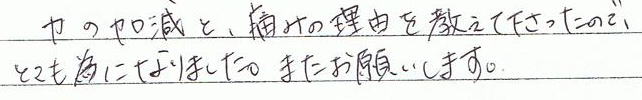 力の加減と、痛みの理由を教えて下さったので、
とても為になりました。またお願いします。